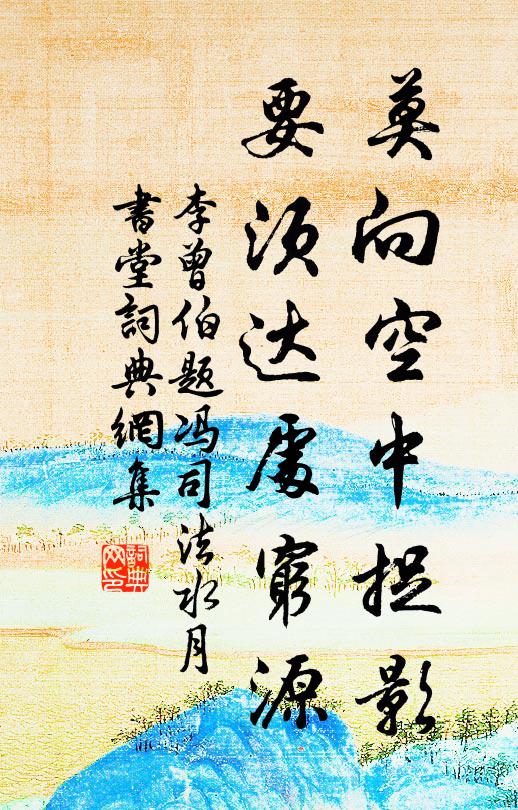 莫向空中捉影
要须达處窮源
李曾伯题冯司法水月
書堂詞典網集
詞典网印